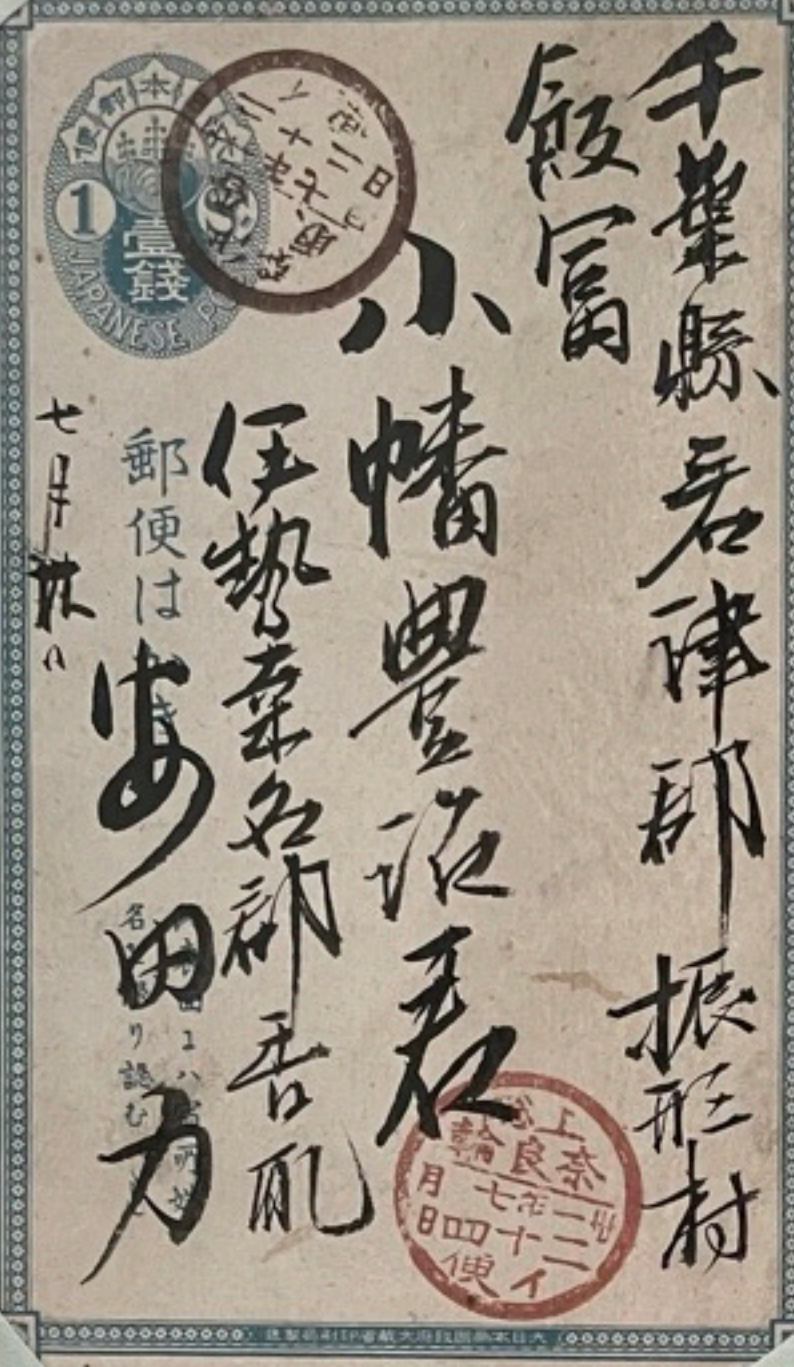 千葉縣君津郡振形村
飯富
小幡豊治君
伊勢桑名郡香取
安田力
七月
郵便はがき
1
壹錢
JAPANESE PO
上総
奈良輪
卅二年
七月
十四日
イ便
大日本帝國政府大藏省印刷局製造